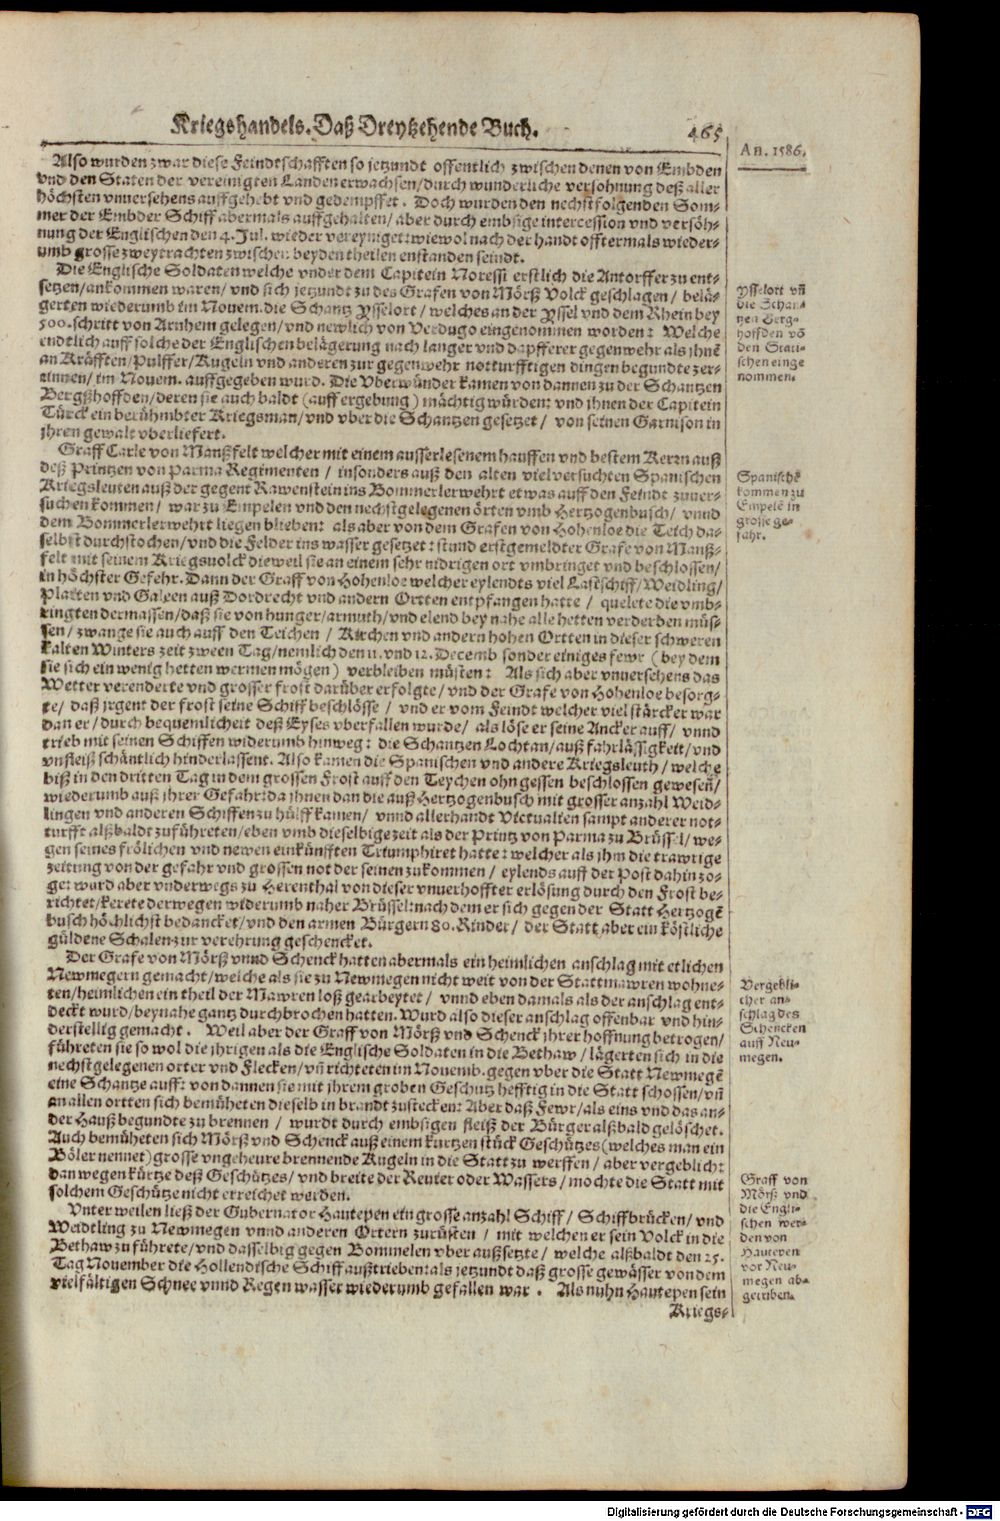 Kriegshandels. Daß Dreytzehende Buch.
465
An. 1586.
Also wurden zwar diese Feindtschafften so jetzundt offentlich zwischen denen von Embden
vnd den Staten der vereinigten Landen erwachsen/durch wunderliche versohnung deß aller
höchsten vnuersehens auffgehebt vnd gedempffet. Doch wurden den nechstfolgenden Som-
mer der Embder Schiff abermals auffgehalten/ aber durch embsige intercession vnd versöh-
nung der Englischen den 4. Jul. wieder vereyniget: wiewol nach der handt offtermals wieder-
umb grosse zweytrachten zwischen beyden theilen enstanden seindt.
Die Englische Soldaten welche vnder dem Capitein Noressi erstlich die Antorffer zu ent-
setzen/ankommen waren/ vnd sich jetzundt zu des Grafen von Mörß Volck geschlagen/ belä-
gerten wiederumb im Nouem. die Schantz Ysselort/ welches an der Yssel vnd dem Rhein bey
500. schritt von Arnhem gelegen/vnd newlich von Verdugo eingenommen worden: Welche
endtlich auff solche der Englischen belägerung nach langer vnd dapfferer gegenwehr als jhnē
an Kräfften/Pulffer/Kugeln vnd anderen zur gegenwehr notturfftigen dingen begundte zer-
rinnen/ im Nouem. auffgegeben wurd. Die Vberwünder kamen von dannen zu der Schantzen
Bergßhoffden/deren sie auch baldt (auff ergebung) mächtig würden: vnd jhnen der Capitein
Türck ein berühmbter Kriegsman/vnd vber die Schantzen gesetzet/ von seinen Garnison in
jhren gewalt vberliefert.
Graff Carle von Manßfelt welcher mit einem ausserlesenem hauffen vnd bestem Kerrn auß
deß Printzen von Parma Regimenten/ insonders auß den alten viel versuchten Spanischen
Kriegsleuten auß der gegent Rawenstein ins Bommerlerwehrt etwas auff den Feindt zuuer-
suchen kommen/ war zu Empelen vnd den nechstgelegenen örten vmb Hertzogenbusch/ vnnd
dem Bommerlerwehrt liegen blieben: als aber von dem Grafen von Hohenloe die Teich da-
selbst durchstochen/vnd die Felder ins wasser gesetzet: stund erstgemeldter Grafe von Manß-
felt mit seinem Kriegsuolck dieweil sie an einem sehr nidrigen ort vmbringet vnd beschlossen/
in höchster Gefehr. Dann der Graff von Hohenloe welcher eylendts viel Lastschiff/Weidling/
Platten vnd Galeen auß Dordrecht vnd andern Ortten entpfangen hatte/ quelete die vmb-
ringten dermassen/daß sie von hunger/armuth/vnd elend bey nahe alle hetten verderben müs-
sen/ zwange sie auch auff den Teichen/ Kirchen vnd andern hohen Ortten in dieser schweren
kalten Winters zeit zween Tag/nemlich den 11. vnd 12. Decemb sonder einiges fewr (bey dem
sie sich ein wenig hetten wermen mögen) verbleiben müsten: Als sich aber vnuersehens das
Wetter verenderte vnd grosser frost darüber erfolgte/ vnd der Grafe von Hohenloe besorg-
te/ daß jrgent der frost seine Schiff beschlösse/ vnd er vom Feindt welcher viel stärcker war
dan er/ durch bequemlicheit deß Eyses vberfallen wurde/ als löse er seine Ancker auff/ vnnd
trieb mit seinen Schiffen widerumb hinweg: die Schantzen Lochtan/auß fahrlässigkeit/vnd
vnfleiß schäntlich hinderlassent. Also kamen die Spanischen vnd andere Kriegsleuth/ welche
biß in den dritten Tag in dem grossen Frost auff den Teychen ohn gessen beschlossen gewesen/
wiederumb auß jhrer Gefahr: da jhnen dan die auß Hertzogenbusch mit grosser anzahl Weid-
lingen vnd anderen Schiffen zu hülff kamen/ vnnd allerhandt Victualien sampt anderer not-
turfft alßbaldt zuführeten/eben vmb dieselbige zeit als der Printz von Parma zu Brüssel/ we-
gen seines frölichen vnd newen einkünfften Triumphiret hatte: welcher als jhm die trawrige
zeitung von der gefahr vnd grossen not der seinen zukommen/ eylends auff der Post dahin zo-
ge: ward aber vnderwegs zu Herenthal von dieser vnuerhoffter erlösung durch den Frost be-
richtet/kerete derwegen widerumb naher Brüssel: nach dem er sich gegen der Statt Hertzogē
busch höchlichst bedancket/vnd den armen Bürgern 80. Rinder/ der Statt aber ein köstliche
güldene Schalen zur verehrung geschencket.
Der Grafe von Mörß vnnd Schenck hatten abermals ein heimlichen anschlag mit etlichen
Newmegern gemacht/welche als sie zu Newmegen nicht weit von der Stattmawren wohne-
ten/heimlichen ein theil der Mawren loß gearbeytet/ vnnd eben damals als der anschlag ent-
deckt wurd/beynahe gantz durchbrochen hatten. Wurd also dieser anschlag offenbar vnd hin-
derstellig gemacht. Weil aber der Graff von Mörß vnd Schenck jhrer hoffnung betrogen/
führeten sie so wol die jhrigen als die Englische Soldaten in die Bethaw/ lägerten sich in die
nechstgelegenen orter vnd Flecken/ vn̄ richteten im Nouemb. gegen vber die Statt Newmegē
eine Schantze auff: von dannen sie mit jhrem groben Geschutz hefftig in die Statt schossen/vn̄
an allen ortten sich bemüheten dieselb in brandt zustecken: Aber daß Fewr/als eins vnd das an-
der Hauß begundte zu brennen/ wurdt durch embsigen fleiß der Bürger alßbald gelöschet.
Auch bemüheten sich Mörß vnd Schenck auß einem kurtzen stück Geschützes (welches man ein
Böler nennet) grosse vngeheure brennende Kugeln in die Statt zu werffen/ aber vergeblich:
dan wegen kürtze deß Geschützes/ vnd breite der Reuier oder Wassers/ mochte die Statt mit
solchem Geschütze nicht erreichet werden.
Vnter weilen ließ der Gubernator Hautepen ein grosse anzahl Schiff/ Schiffbrücken/ vnd
Weidtling zu Newmegen vnnd anderen Ortern zurüsten/ mit welchen er sein Volck in die
Bethaw zu führete/vnd dasselbig gegen Bommelen vber außsetzte/ welche alßbaldt den 25.
Tag November die Hollendische Schiff außtrieben: als jetzundt daß grosse gewässer von dem
vielfältigen Schnee vnnd Regen wasser wiederumb gefallen war. Als nuhn Hautepen sein
Kriegs-
Ysselort vn̄
die Schan-
tzen Berg-
hoffden vō
den Stati-
schen einge
nommen.
Spanischē
kommen zu
Empele in
grosse ge-
fahr.
Vergebli-
cher an-
schlag des
Schencken
auff Neu-
megen.
Graff von
Mörß vnd
die Engli-
schen wer-
den von
Hautepen
vor Neu-
megen ab-
getrieben.
Digitalisierung gefördert durch die Deutsche Forschungsgemeinschaft - DFG